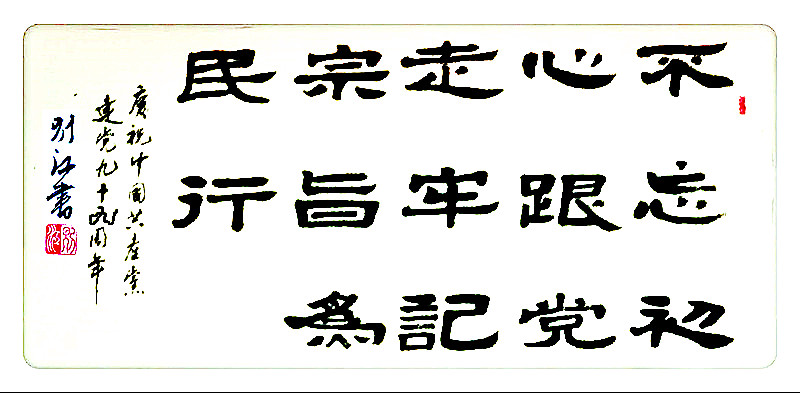 不忘初
心跟党
走牢記
宗旨為
民行
慶祝中國共產黨
建党九十周年
刘江書